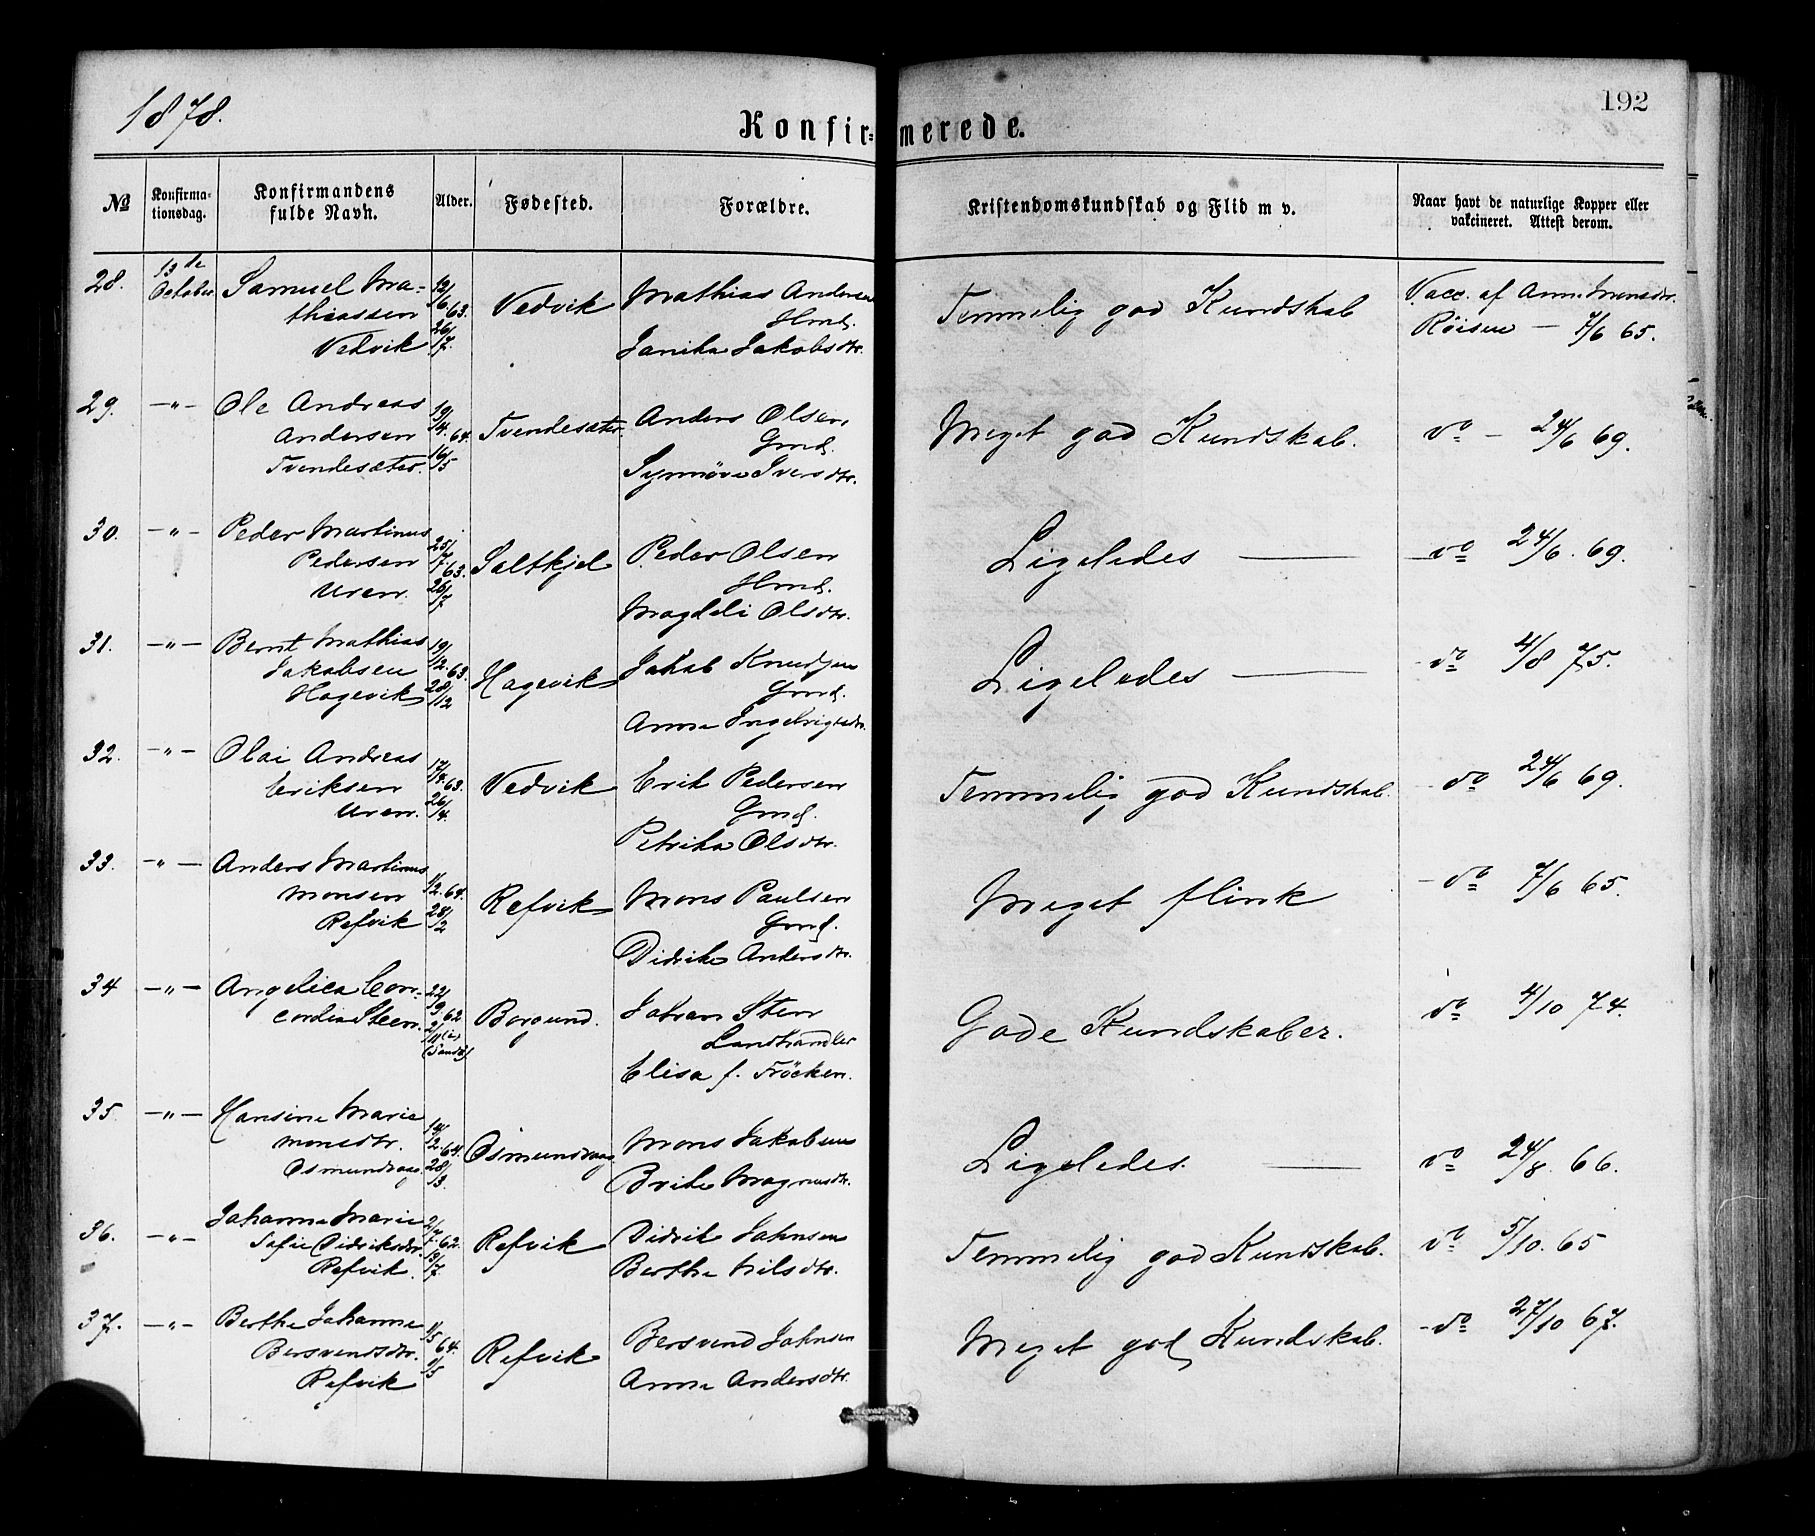 1878.
192
Konfir=
merede.
No
Konfirma=
tionsdag.
Konfirmandens
fulde Navn.
Alder.
Fødested.
Forældre.
Kristendomskundskab og Flid m v.
Naar havt de naturlige Kopper eller
vakcineret. Attest derom.
28.
13de
October
Samuel Ma-
thiassen
Vedvik
12/6.63.
26/7.
Vedvik
Mathias Andersen
Hmd.
Janika Jakobsdtr.
Temmelig god Kundskab
Vacc. af Anne Monsdtr.
Røisen — 7/6 65.
29.
—"—
Ole Andreas
Andersen
Tvendesæter.
19/4.64.
16/5
Tvendesæter.
Anders Olsen
Gmd.
Synnøve Iversdtr.
Meget god Kundskab.
do — 24/6 69.
30.
—"—
Peder Martinus
Pedersen
Uren.
25/7.63.
26/7
Saltkjel
Peder Olsen
Hmd.
Magdeli Olsdtr.
Ligeledes —
do 24/6. 69.
31.
—"—
Bernt Mathias
Jakobsen
Hagevik
19/12.63.
28/12
Hagevik
Jakob Knudsen
Gmd.
Anne Ingebrigtsdtr.
Ligeledes —
do 4/8 75.
32.
—"—
Olai Andreas
Eriksen
Uren.
17/4.63.
26/4.
Vedvik
Erik Pedersen
Gmd.
Petrika Olsdtr.
Temmelig god Kundskab.
do 24/6 69.
33.
—"—
Anders Martinus
Monsen
Refvik
1/2.64.
28/2
Refvik
Mons Paulsen
Gmd.
Didrike Andersdtr.
Meget flink
do 7/6 65.
34
—"—
Angelica Con-
cordia Steen.
22/9 62
2/11 (i
Borgund.
Johan Steen
Landhandler
Elisa f. Fröcken.
Gode Kundskaber.
do 4/10 74.
35.
—"—
Hansine Marie
Monsdtr.
Osmundvaag.
14/2.64.
28/3.
Osmundvaag
Mons Jakobsen
Brite Magnusdtr.
Ligeledes. —
do 24/8. 66.
36.
—"—
Johanne Marie
Sofie Didriksdtr.
Refvik.
2/7.62.
13/7.
Refvik
Didrik Johnsen
Berthe Nilsdtr.
Temmelig god Kundskab.
do 5/10. 65
37.
—"—
Berthe Johanne
Bersvendsdtr.
Refvik
1/5 64.
9/5
Refvik
Bersvend Johnsen
Anne Andersdtr.
Meget god Kundskab.
do 27/10 67.